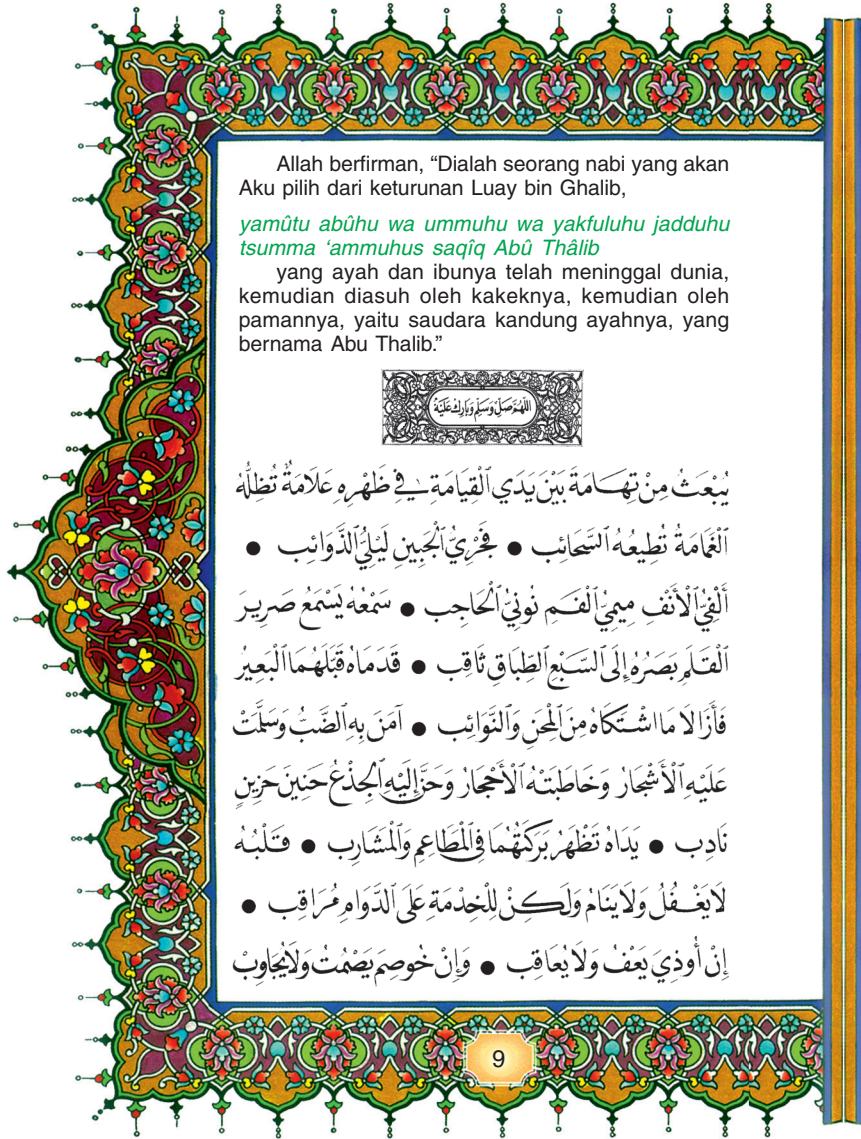 Allah berfirman, “Dialah seorang nabi yang akan
Aku pilih dari keturunan Luay bin Ghalib,
yamûtu abûhu wa ummuhu wa yakfuluhu jadduhu
tsumma ‘ammuhus saqîq Abû Thâlib
yang ayah dan ibunya telah meninggal dunia,
kemudian diasuh oleh kakeknya, kemudian oleh
pamannya, yaitu saudara kandung ayahnya, yang
bernama Abu Thalib.”
اللّٰهُمَّ صَلِّ وَسَلِّمْ وَبَارِكْ عَلَيْهِ
يُبْعَثُ مِنْ تِهَامَةَ بَيْنَ يَدَيِ الْقِيَامَةِ فِي ظَهْرِهِ عَلَامَةٌ تُظِلُّهُ
الْغَمَامَةُ تُطِيعُهُ السَّحَائِب ● فَجْرِيُّ الْجَبِينِ لَيْلِيُّ الذَّوَائِب ●
أَلْفِيُّ الْأَنْفِ مِيمِيُّ الْفَمِ نُونِيُّ الْحَاجِب ● سَمْعُهُ يَسْمَعُ صَرِيرَ
الْقَلَمِ بَصَرُهُ إِلَى السَّبْعِ الطِّبَاقِ ثَاقِب ● قَدَمَاهُ قَبَّلَهُمَا الْبَعِيرُ
فَأَزَالَا مَا اشْتَكَاهُ مِنَ الْمِحَنِ وَالنَّوَائِب ● آمَنَ بِهِ الضَّبُّ وَسَلَّمَتْ
عَلَيْهِ الْأَشْجَارُ وَخَاطَبَتْهُ الْأَحْجَارُ وَحَنَّ إِلَيْهِ الْجِذْعُ حَنِينَ حَزِينٍ
نَادِب ● يَدَاهُ تَظْهَرُ بَرَكَتُهُمَا فِي الْمَطَاعِمِ وَالْمَشَارِب ● قَلْبُهُ
لَا يَغْفُلُ وَلَا يَنَامُ وَلَكِنْ لِلْخِدْمَةِ عَلَى الدَّوَامِ مُرَاقِب ●
إِنْ أُوذِيَ يَعْفُ وَلَا يُعَاقِب ● وَإِنْ خُوصِمَ يَصْمُتُ وَلَا يُجَاوِبْ
9